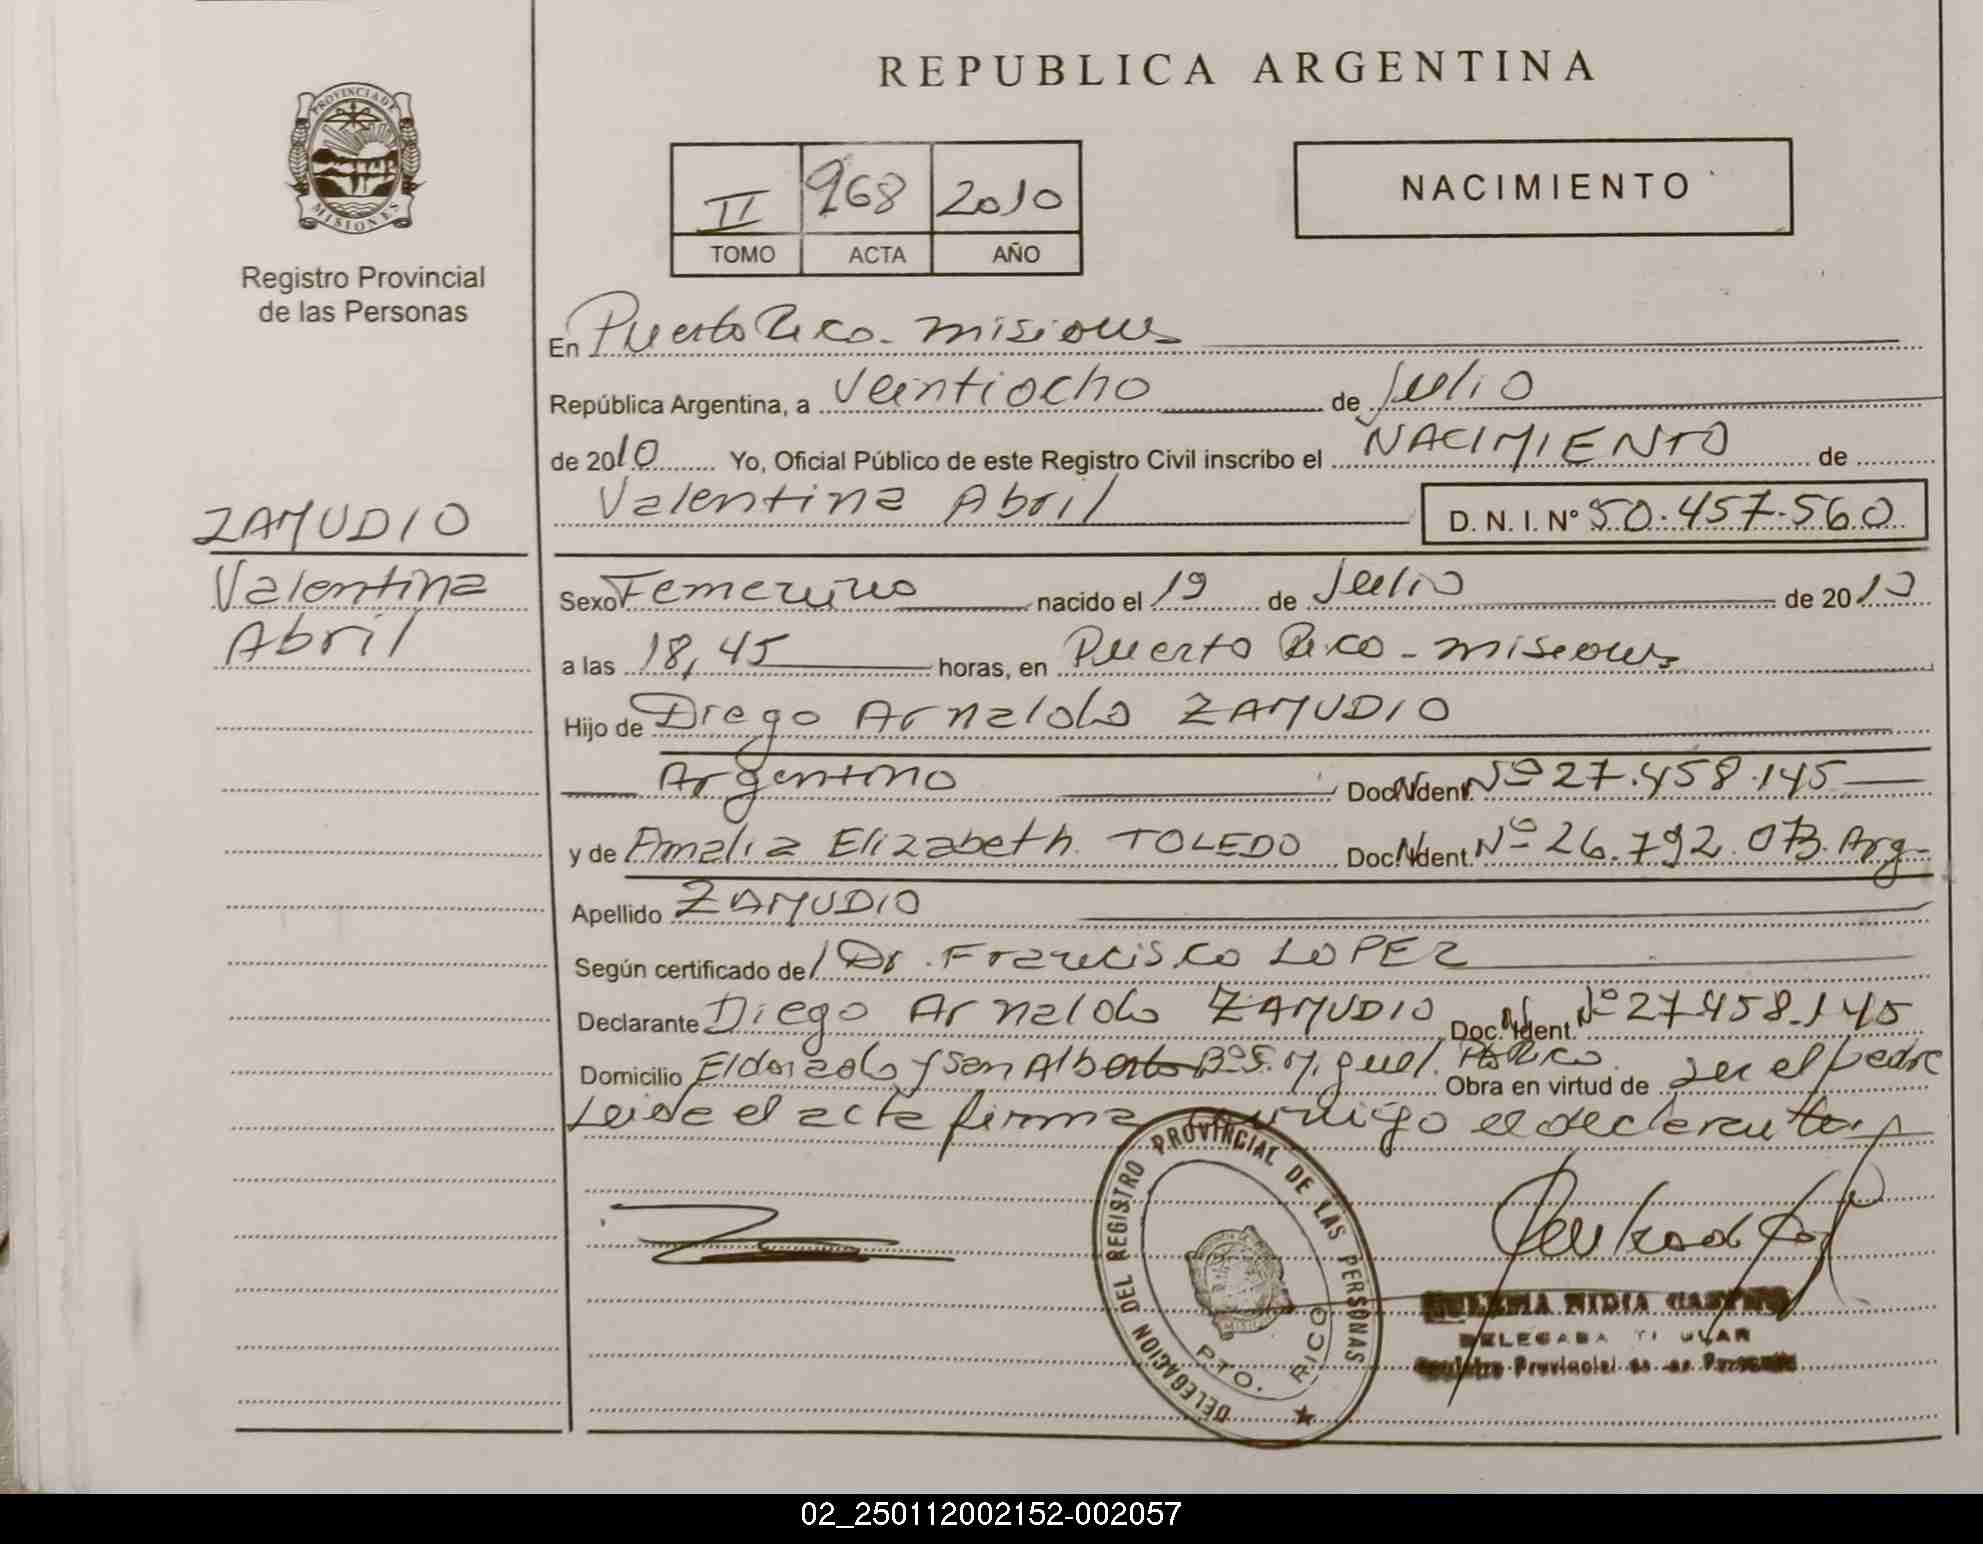 REPUBLICA ARGENTINA
PROVINCIA DE MISIONES
Registro Provincial
de las Personas
II 968 2010
TOMO ACTA AÑO
NACIMIENTO
En Puerto Rico - Misiones
República Argentina, a Veintiocho de Julio
de 2010 Yo, Oficial Público de este Registro Civil inscribo el NACIMIENTO de
Valentina Abril D. N. I. Nº 50.457.560
ZAMUDIO
Valentina
Abril
Sexo Femenino nacido el 19 de Julio de 2010
a las 18,45 horas, en Puerto Rico - Misiones
Hijo de Diego Arnaldo ZAMUDIO
Argentino Doc. Ident. Nº 27.458.145
y de Amalia Elizabeth TOLEDO Doc. Ident. Nº 26.792.073. Arg
Apellido ZAMUDIO
Según certificado del Dr. Francisco LOPEZ
Declarante Diego Arnaldo ZAMUDIO Doc. Ident. Nº 27.458.145
Domicilio Eldorado y San Alberto Bº S. Miguel. Pto Rico Obra en virtud de ser el padre
Leida el acta firma conmigo el declarante
DELEGACION DEL REGISTRO PROVINCIAL DE LAS PERSONAS
PTO. RICO
NIDIA
DELEGADA TITULAR
Registro Provincial de las Personas
02_250112002152-002057